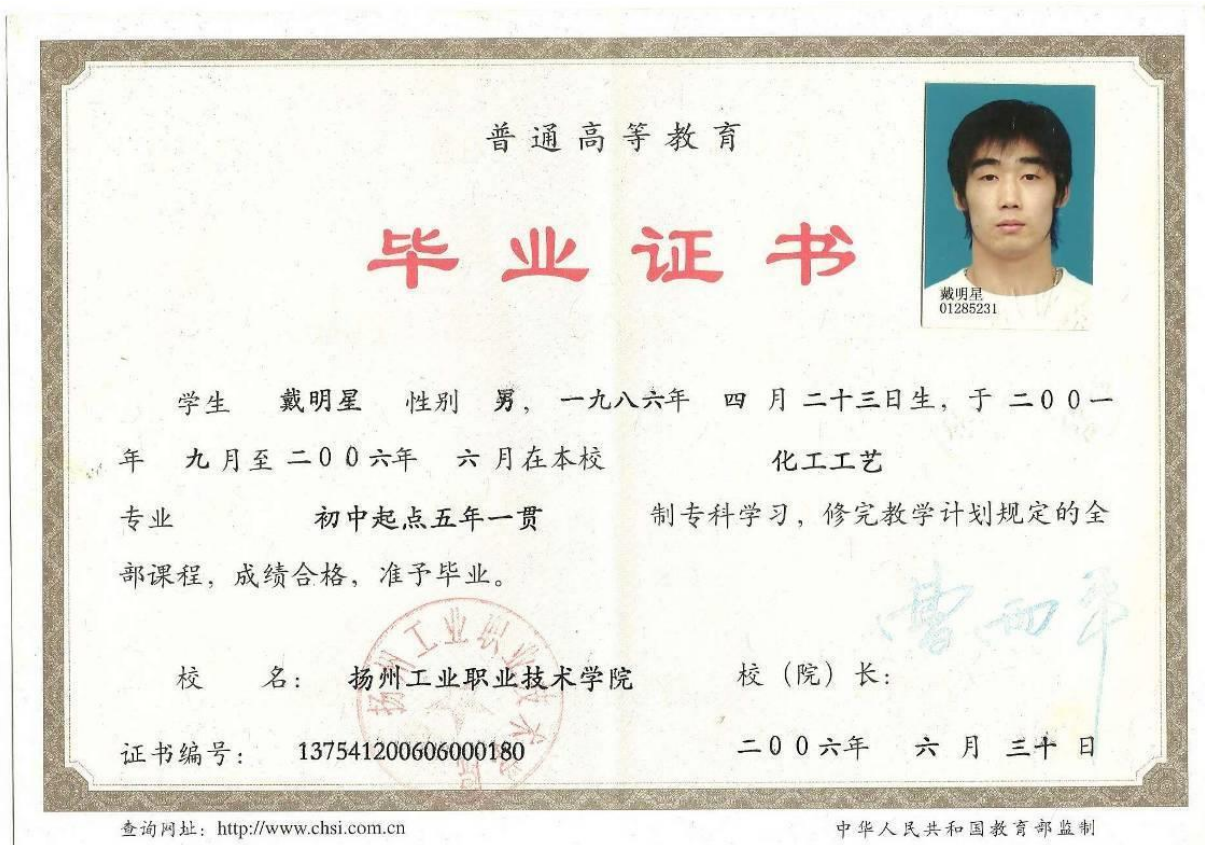 普通高等教育
毕业证书
戴明星
01285231
学生 戴明星 性别 男，一九八六年 四 月 二十三日生，于 二00一
年 九 月至 二00六年 六 月在本校 化工工艺
专业 初中起点五年一贯 制专科学习，修完教学计划规定的全
部课程，成绩合格，准予毕业。
扬州工业职业技术学院
校 名： 扬州工业职业技术学院 校（院）长：
曹雨平
证书编号： 137541200606000180 二00六年 六 月 三十 日
查询网址：http://www.chsi.com.cn 中华人民共和国教育部监制